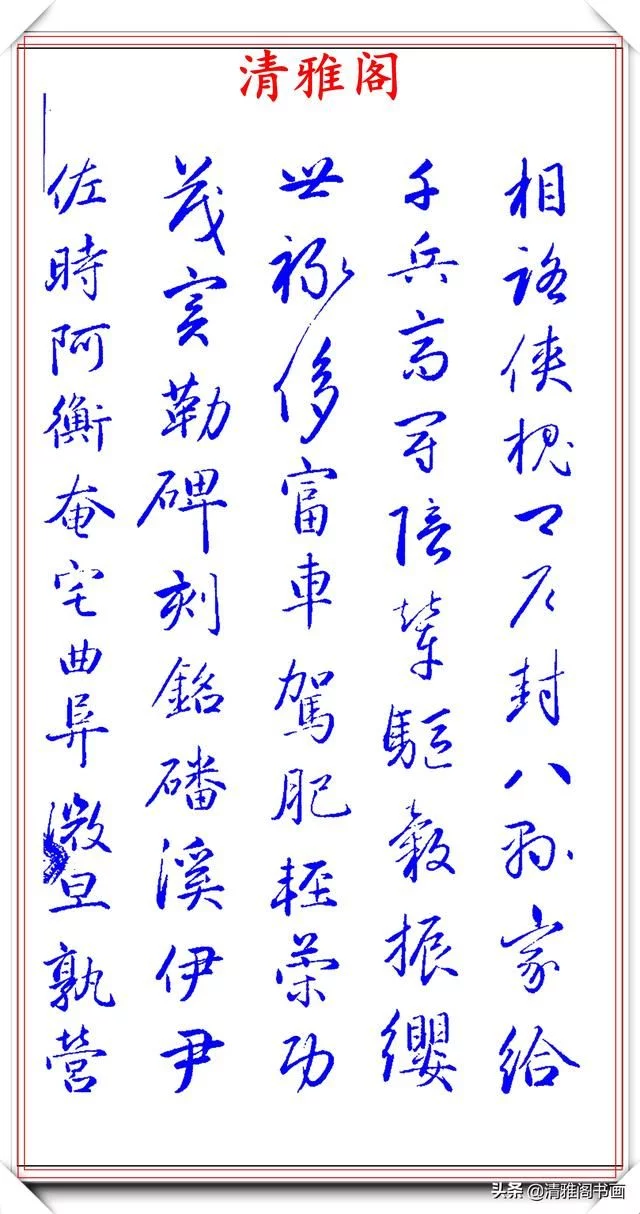 清雅阁
相路俠槐卿户封八縣家給
千兵高冠陪輦驅轂振纓
世祿侈富車駕肥輕策功
茂實勒碑刻銘磻溪伊尹
佐時阿衡奄宅曲阜微旦孰營
头条 @清雅阁书画